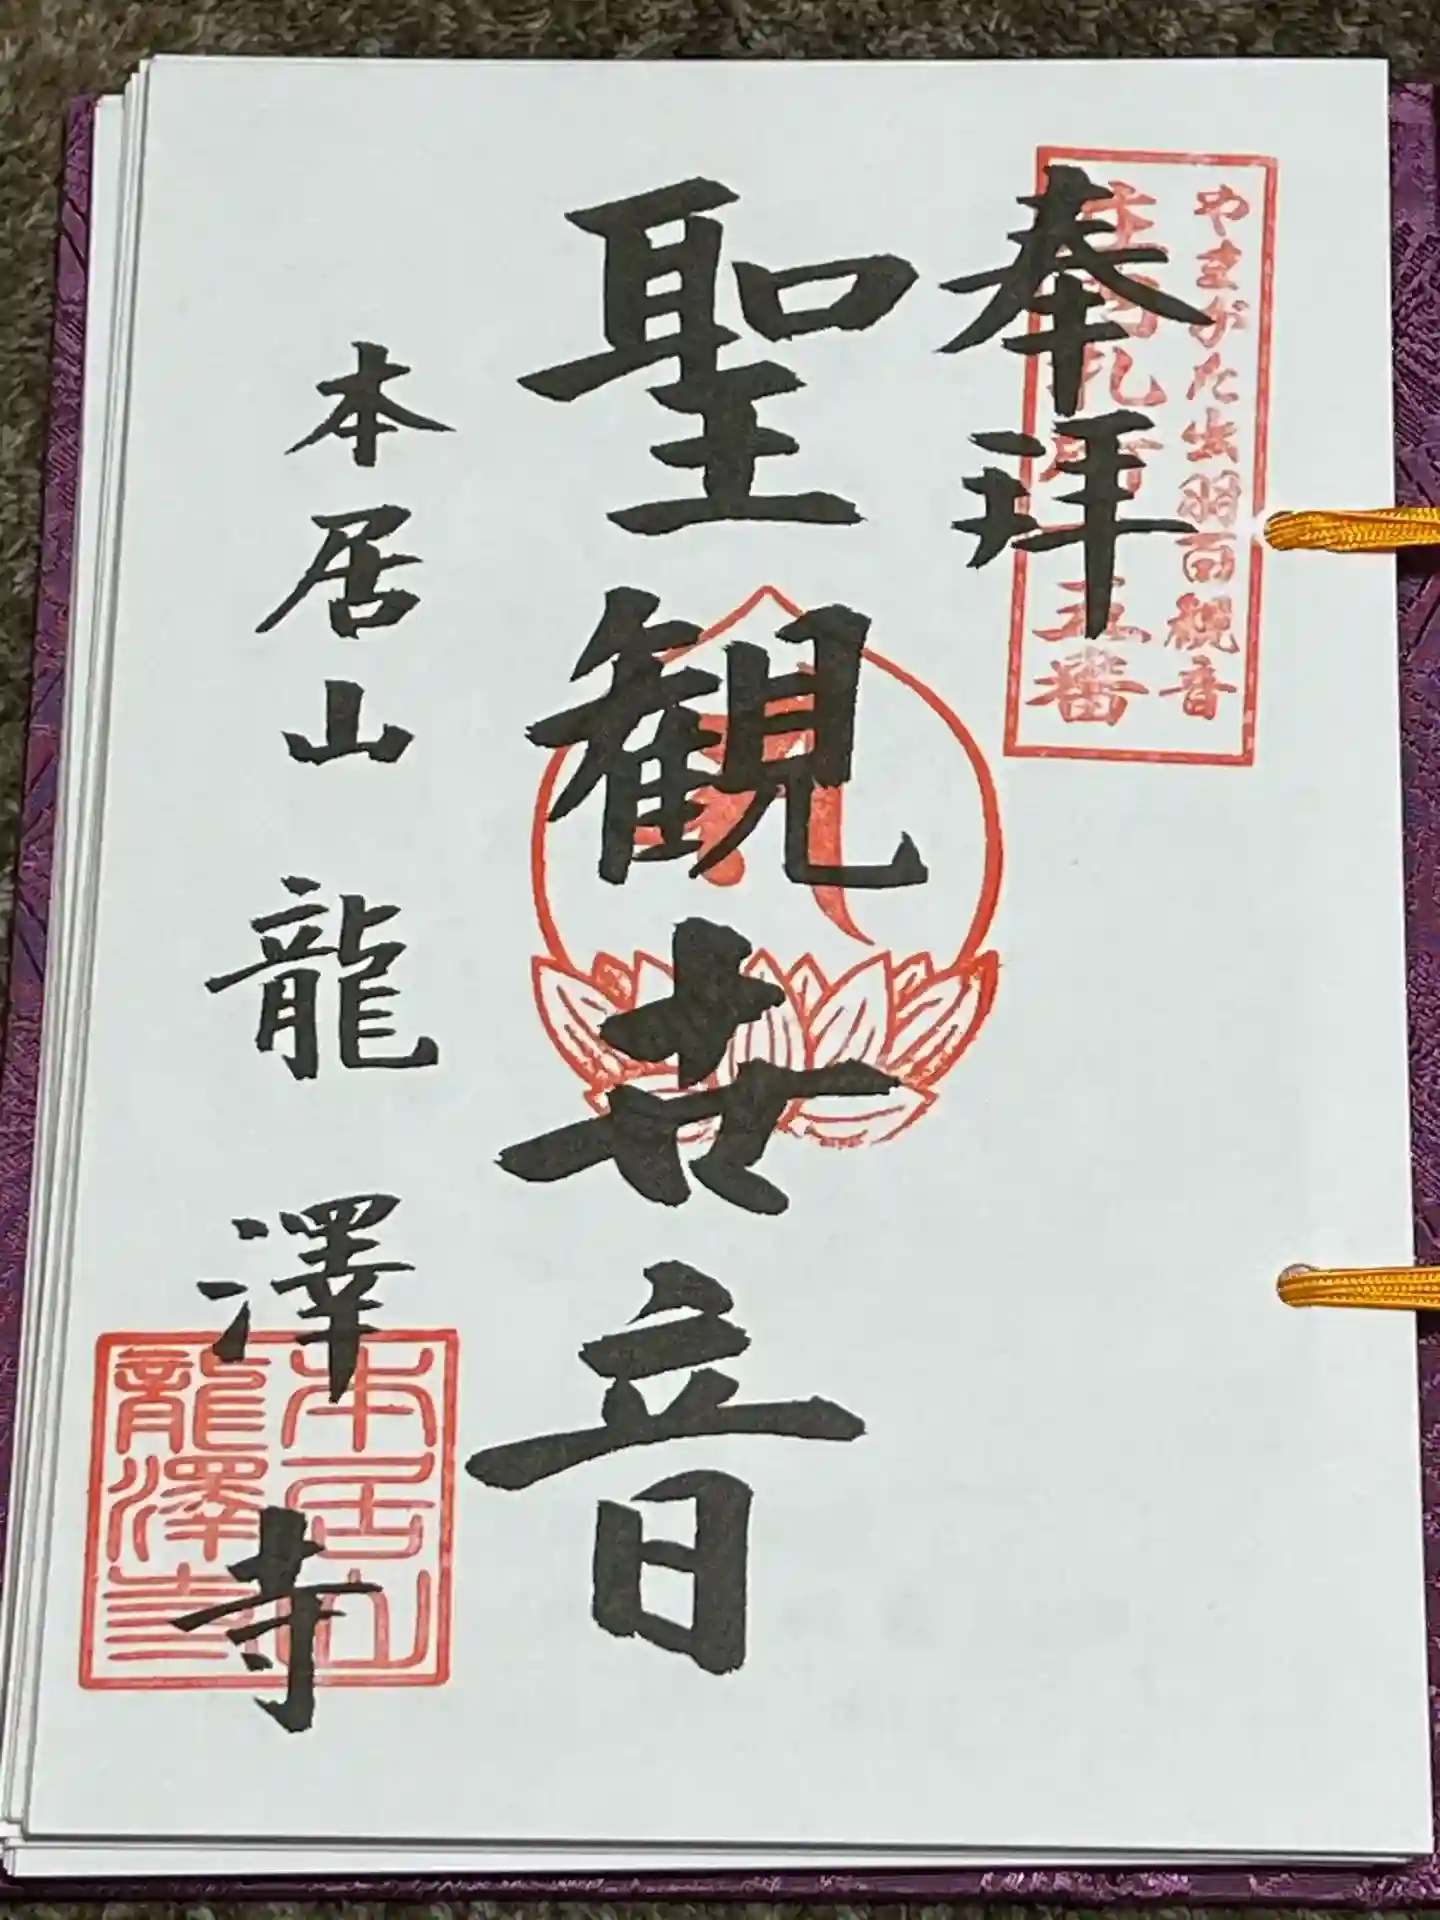 やまがた出羽百観音
庄内札所 五番
奉拝
聖観世音
本居山 龍澤寺
本居山
龍澤寺